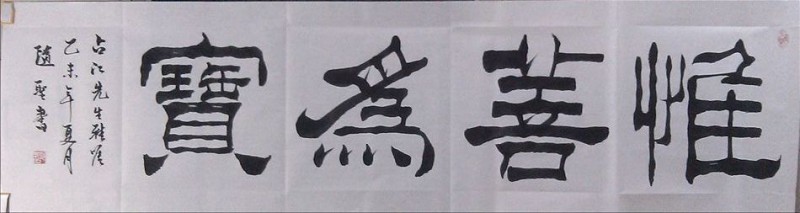 惟善為寶
占江先生雅賞
乙未年夏月
隨聖書